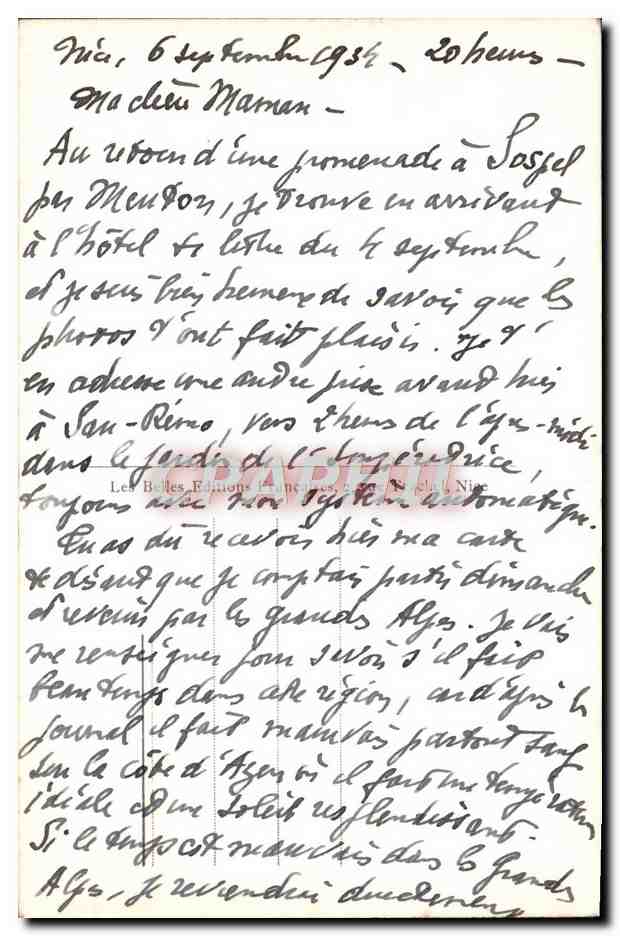 Nice, 6 septembre 1934 - 20 heures -
Ma chère Maman -
Au retour d'une promenade à Sospel
par Menton, je trouve en arrivant
à l'hôtel ta lettre du 4 septembre,
et je suis bien heureux de savoir que les
photos t'ont fait plaisir. Je t'
en adresse une autre prise avant hier
à San-Rémo, vers 2 heures de l'après-midi
dans le jardin de l'Impératrice,
Les Belles Editions Françaises, Nice
toujours avec mon système automatique.
Tu as dû recevoir hier ma carte
te disant que je comptais partir dimanche
et revenir par les grandes Alpes. Je vais
me renseigner pour savoir s'il fait
beau temps dans cette région, car d'après le
journal il fait mauvais partout sauf
sur la côte d'Azur où il fait une température
idéale et un soleil resplendissant.
Si le temps est mauvais dans les Grandes
Alpes, je reviendrai directement